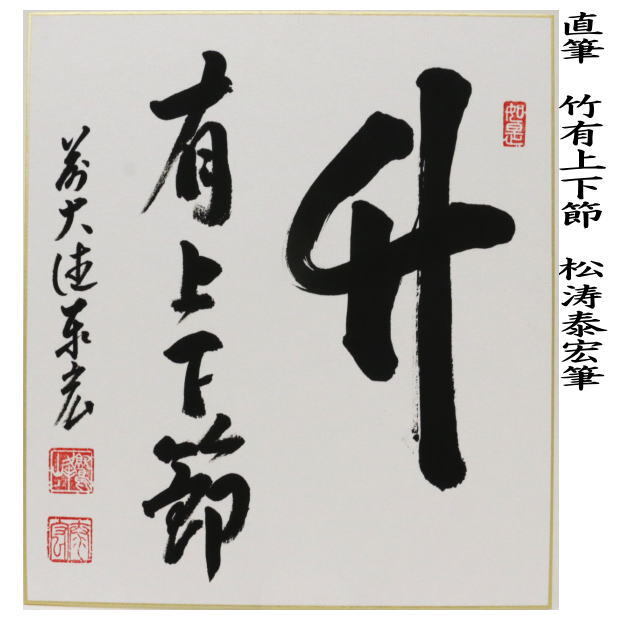 直筆 竹有上下節 松涛泰宏筆
竹
有上下節
前大徳泰宏
如是